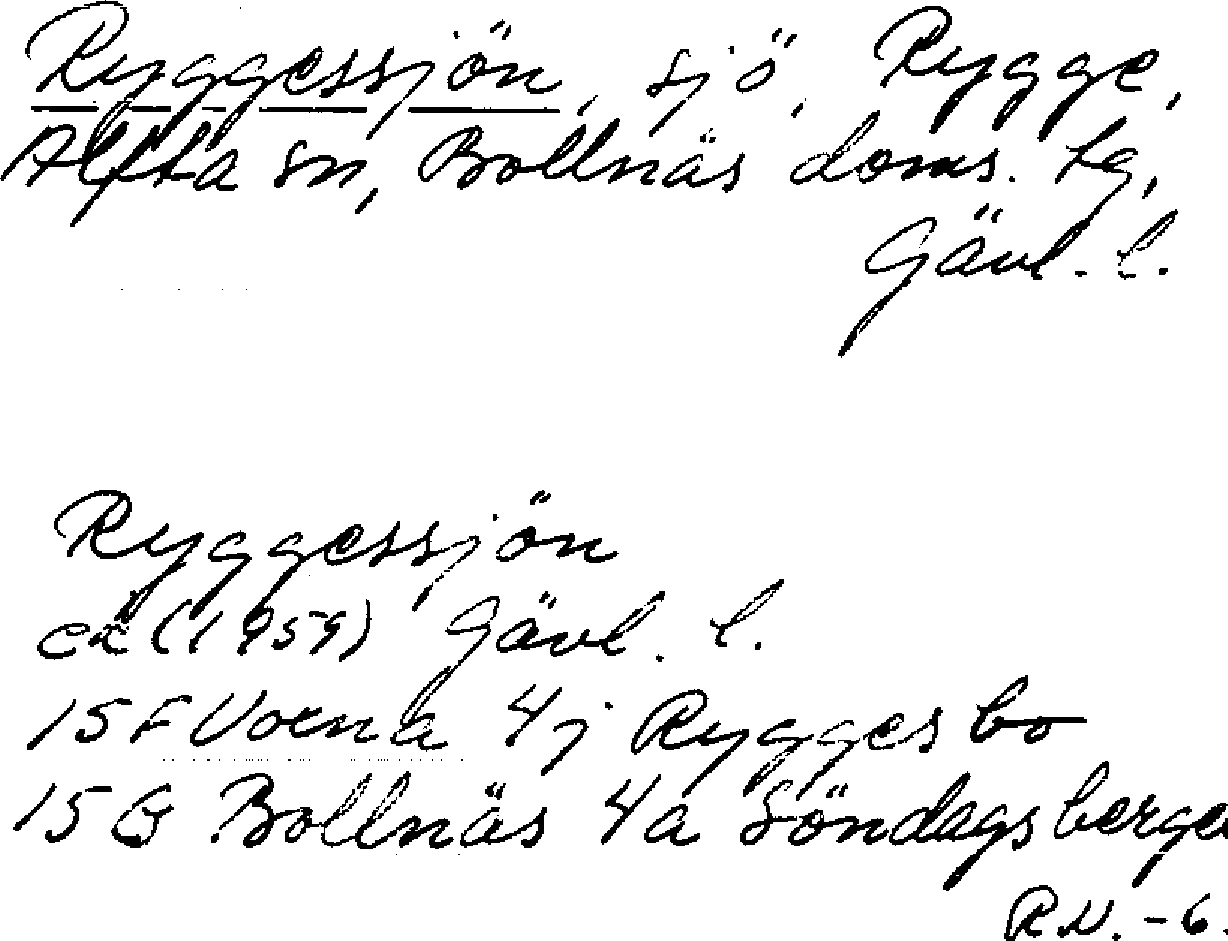 Ryggessjön, sjö, Rygge,
Alfta sn, Bollnäs doms. tg,
Gävl. l.
Ryggessjön
ek (1959) Gävl. l.
15 F Voxna 4j Ryggesbo
15 G Bollnäs 4a Söndagsberge
R.N. -6.